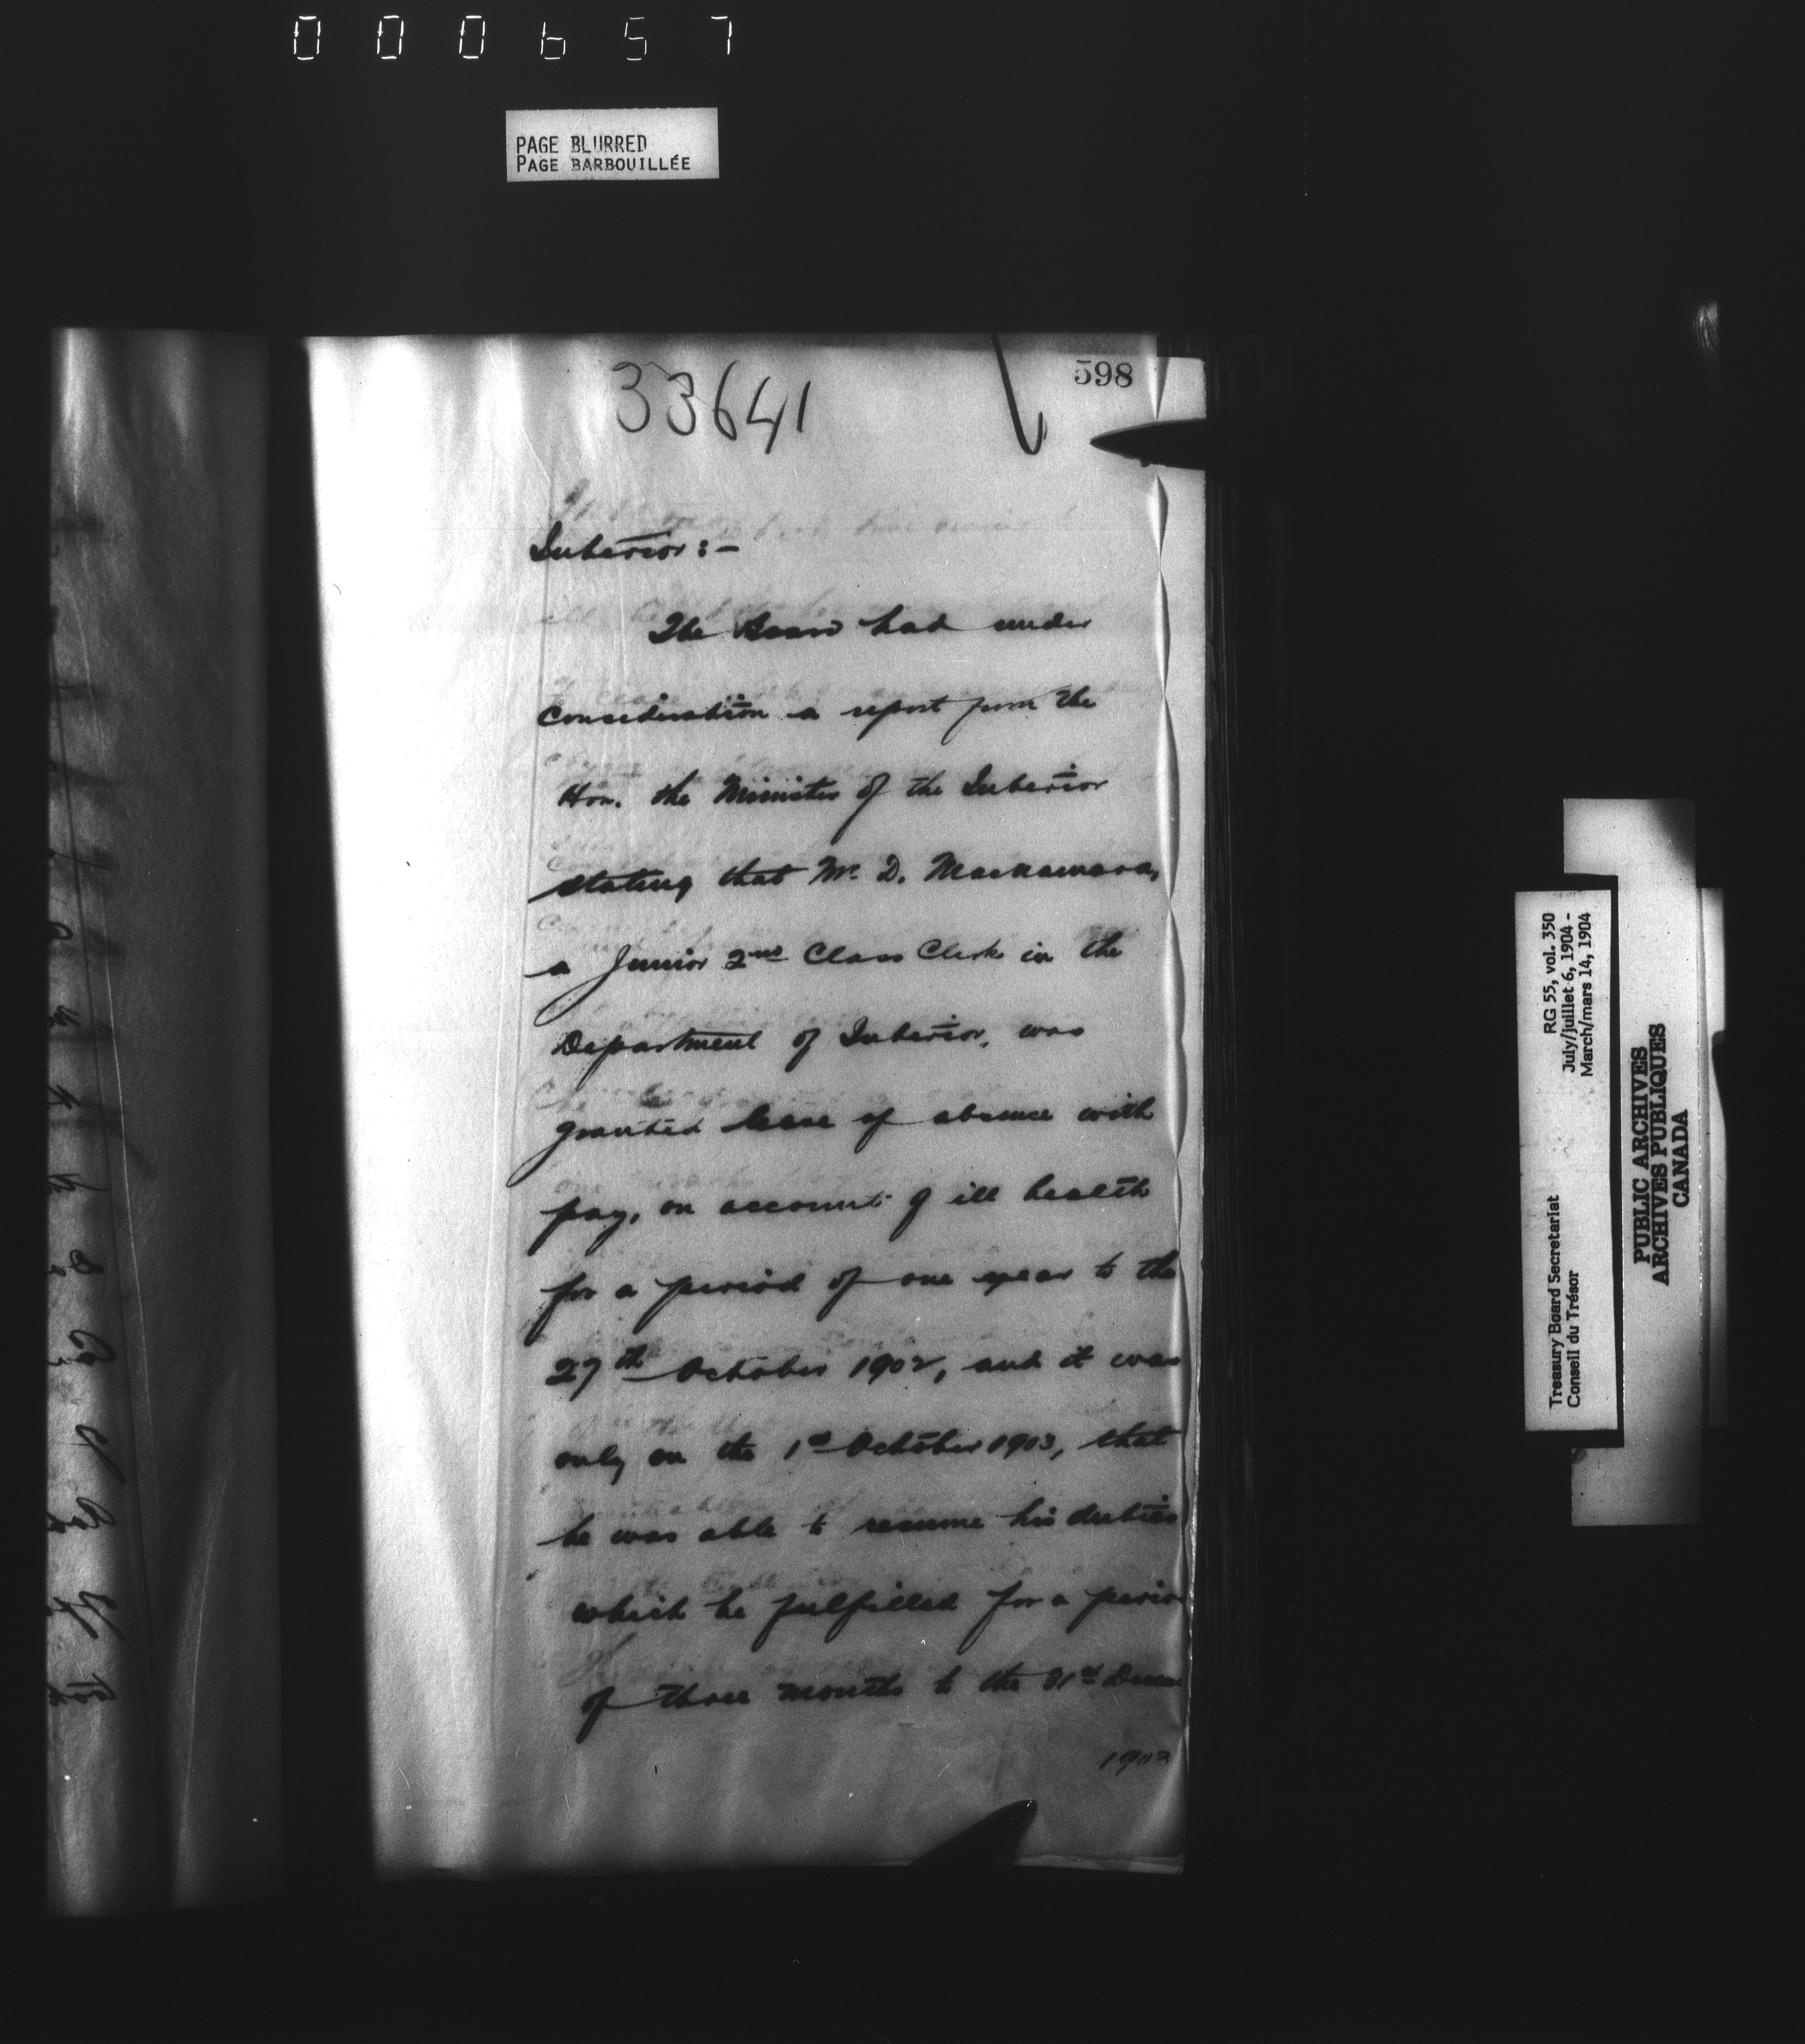 000657
PAGE BLURRED
PAGE BARBOUILLÉE
598
33641
Interior:-
The Board had under
consideration a report from the
Hon. the Minister of the Interior
stating that Mr. D. Macnamara,
a Junior 2nd Class Clerk in the
Department of Interior, was
granted leave of absence with
pay, on account of ill health
for a period of one year to the
27th October 1902, and it was
only on the 1st October 1903, that
he was able to resume his duties
which he fulfilled for a perio
of three months to the 31st Decem
1903
Treasury Board Secretariat
Conseil du Trésor
RG 55, vol. 350
July/juillet 6, 1904 -
March/mars 14, 1904
PUBLIC ARCHIVES
ARCHIVES PUBLIQUES
CANADA